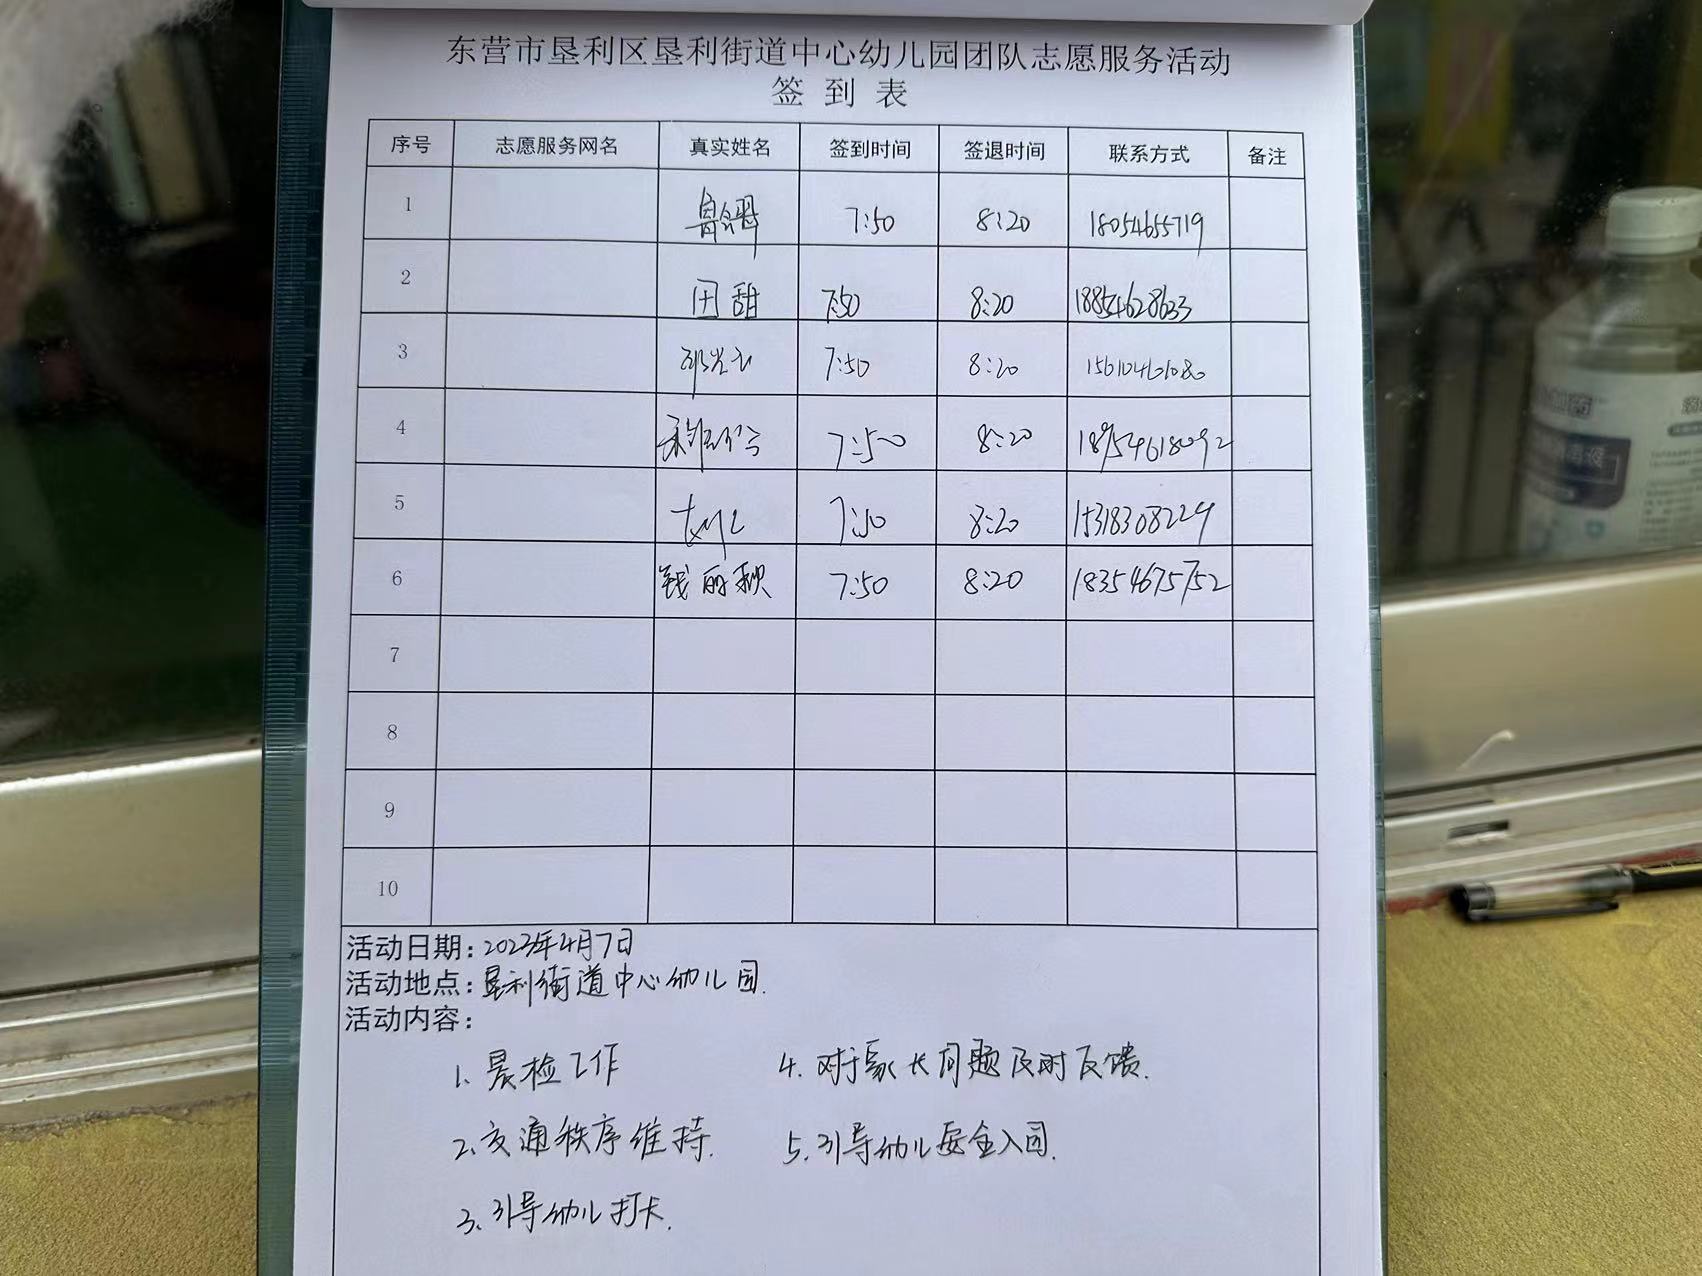 东营市垦利区垦利街道中心幼儿园团队志愿服务活动
签到表
序号 志愿服务网名 真实姓名 签到时间 签退时间 联系方式 备注
1 7:50 8:20 18054655719
2 田甜 7:50 8:20 18854628633
3 7:50 8:20 15610461080
4 7:50 8:20 18954618092
5 7:50 8:20 15318308229
6 钱丽秧 7:50 8:20 18354675752
7
8
9
10
活动日期：2023年4月7日
活动地点：垦利街道中心幼儿园.
活动内容：
1. 晨检工作
4. 对于家长问题及时反馈.
2. 交通秩序维持.
5. 引导幼儿安全入园.
3. 引导幼儿打卡.